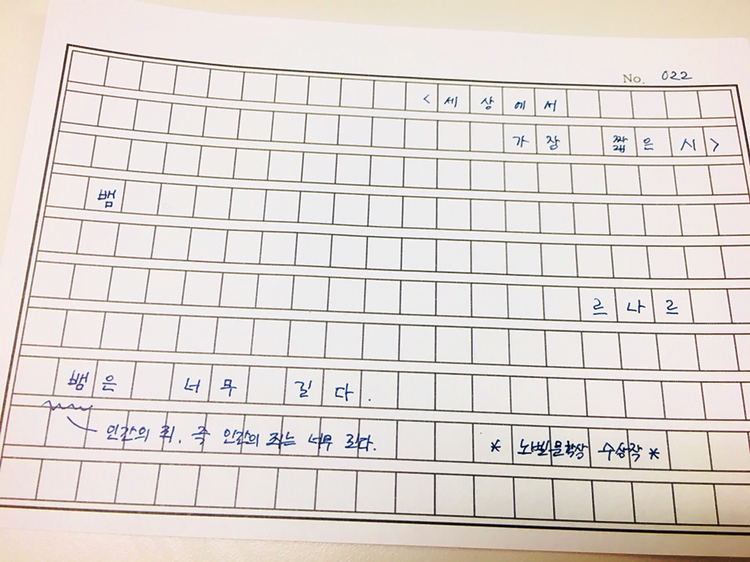 No. 022
< 세상에서
가장 짧은 시 >
뱀
르나르
뱀은 너무 길다.
인간의 죄, 즉 인간의 죄는 너무 크다.
* 노벨문학상 수상작 *